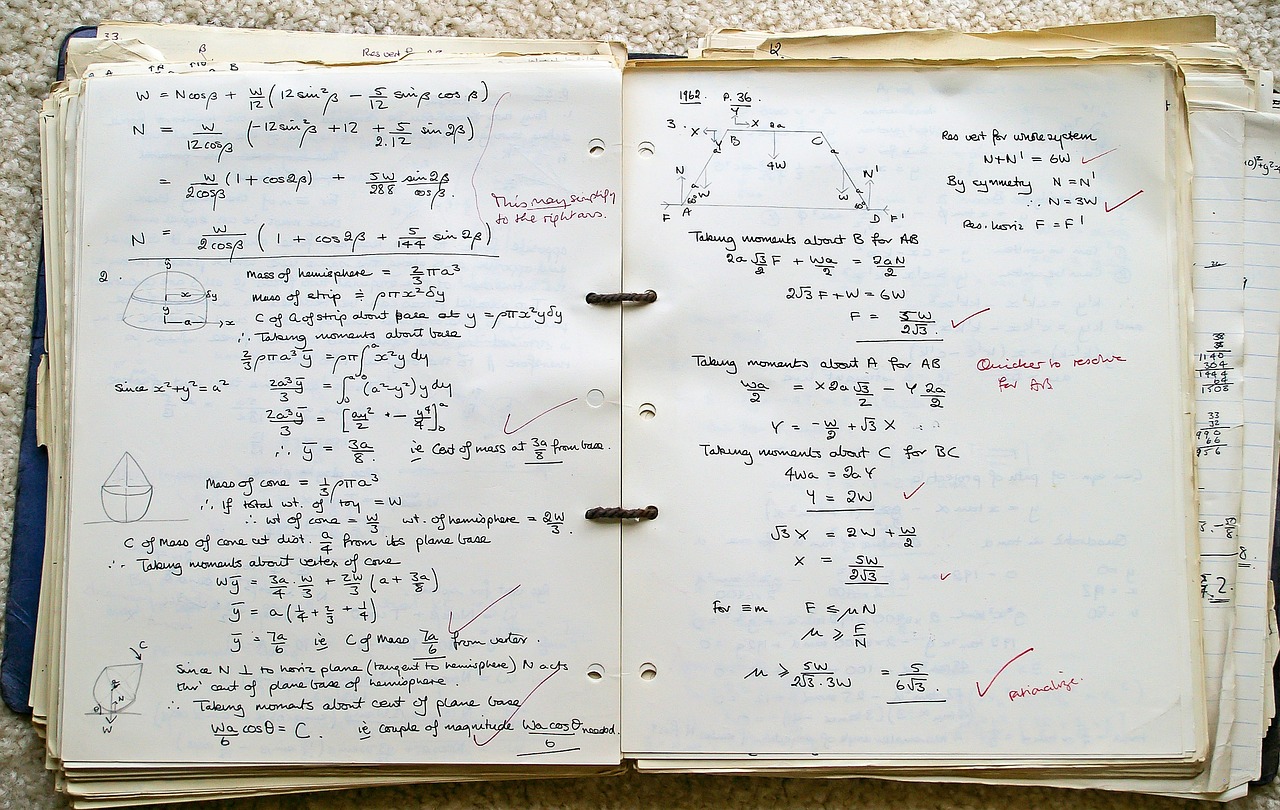 33.
β
Res vert
A
B
W = N cosβ + W/12 (12 sin²β − 5/12 sinβ cosβ)
N = W/12cosβ (−12 sin²β + 12 + 5/2.12 sin 2β)
= W/2cosβ (1 + cos2β) + 5W/288 sin2β/cosβ.
This may simplify
to the right ans.
N = W/2cosβ (1 + cos 2β + 5/144 sin 2β)
2.
y
x
δy
y
a
x
Mass of hemisphere = 2/3 πa³
Mass of strip ≑ ρπx²δy
C of G of strip about base at y = ρπx²yδy
∴ Taking moments about base
2/3 ρπa³ȳ = ρπ∫₀ᵃ x²y dy
Since x²+y² = a² 2a³ȳ/3 = ∫₀ᵃ (a²−y²) y dy
2a³ȳ/3 = [ay²/2 − y⁴/4]₀ᵃ
∴ ȳ = 3a/8 ie Cent of mass at 3a/8 from base.
Mass of cone = 1/3 ρπa³
∴ If total wt. of toy = W
∴ wt of cone = W/3 wt. of hemisphere = 2W/3.
C of Mass of cone at dist. a/4 from its plane base
∴ Taking moments about vertex of cone
Wȳ = 3a/4 . W/3 + 2W/3 (a + 3a/8)
ȳ = a(1/4 + 2/3 + 1/4)
ȳ = 7a/6 ie C of Mass 7a/6 from vertex.
C
θ
N
W
Since N ⊥ to horiz plane (tangent to hemisphere) N acts
thro' cent of plane base of hemisphere.
∴ Taking moments about cent of plane base
Wa/6 cosθ = C. ie couple of magnitude Wa cosθ/6 needed.
12.
1962. P. 36.
3.
Y
X
X
2a
B
C
Y
a
a
4W
N
N'
a
a
W
W
60°
60°
F
A
D
F'
Res vert for whole system
N+N' = 6W
By symmetry N = N'
∴ N = 3W
Res. horiz F = F'
Taking moments about B for AB
2a √3/2 F + Wa/2 = 2aN/2
2√3 F + W = 6W
F = 5W/2√3.
Taking moments about A for AB
Quicker to resolve
for AB
Wa/2 = X 2a √3/2 − Y 2a/2
Y = −W/2 + √3 X
Taking moments about C for BC
4Wa = 2aY
Y = 2W
√3 X = 2W + W/2
X = 5W/2√3
For ≡m F ≤ μN
μ ≥ F/N
μ ≥ 5W/2√3.3W = 5/6√3.
rationalize.
38
38
1140
304
1444
64
1508
33
32
990
66
956